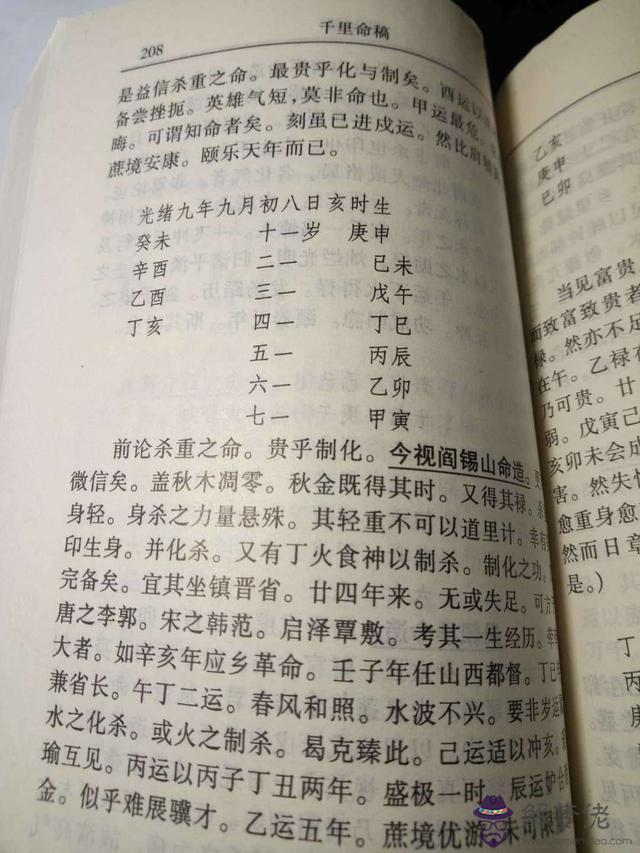 208
千里命稿
是益信杀重之命。最贵乎化与制矣。酉运以
备尝挫扼。英雄气短，莫非命也。甲运最危。
晦。可谓知命者矣。刻虽已进戌运。然比肩
蔗境安康。颐乐天年而已。
光绪九年九月初八日亥时生
癸未 十一岁 庚申
辛酉 二一 己未
乙酉 三一 戊午
丁亥 四一 丁巳
五一 丙辰
六一 乙卯
七一 甲寅
前论杀重之命。贵乎制化。今视阎锡山命造。更
微信矣。盖秋木凋零。秋金既得其时。又得其禄。杀
身轻。身杀之力量悬殊。其轻重不可以道里计。幸有
印生身。并化杀。又有丁火食神以制杀。制化之功。
完备矣。宜其坐镇晋省。廿四年来。无或失足。可方
唐之李郭。宋之韩范。启泽覃敷。考其一生经历。幸
大者。如辛亥年应乡革命。壬子年任山西都督。丁巳
兼省长。午丁二运。春风和照。水波不兴。要非岁运
水之化杀。或火之制杀。曷克臻此。己运适以冲亥。
瑜互见。丙运以丙子丁丑两年。盛极一时。辰运妒合
金。似乎难展骥才。乙运五年。蔗境优游。未可限
乙亥
庚申
己卯
当见富贵
而致富致贵者
禄。然亦不足
在午。乙禄在
乃可贵。廿
弱。戊寅己
亥卯未会成
害。然失忄
愈重身愈
然而日章
是。）
丁
丙
庚